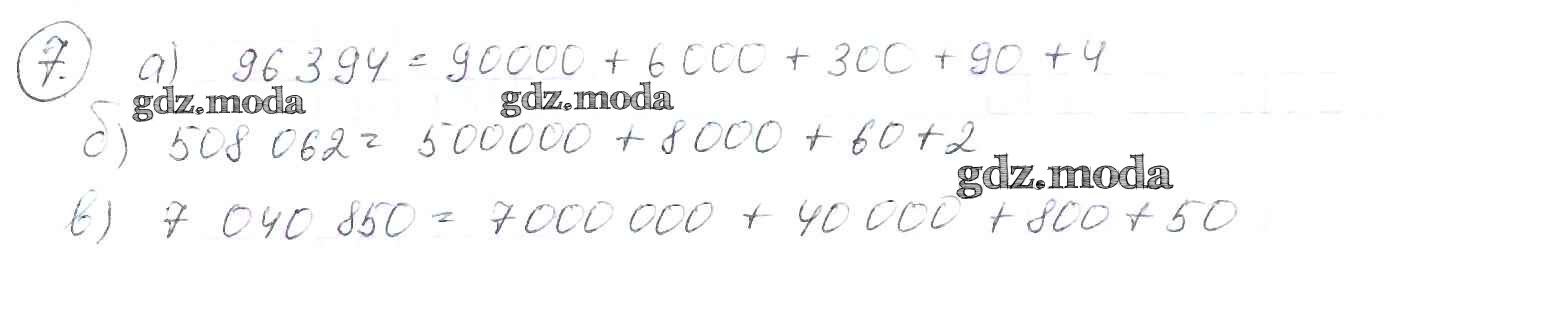 7. а) 96 394 = 90000 + 6000 + 300 + 90 + 4
gdz.moda gdz.moda
б) 508 062 = 500000 + 8000 + 60 + 2
gdz.moda
в) 7 040 850 = 7000 000 + 40 000 + 800 + 50